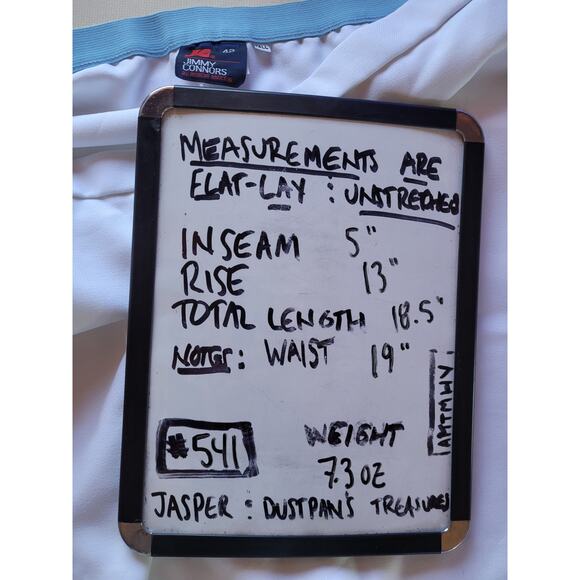 JIMMY
CONNORS
42
MEASUREMENTS ARE
FLAT-LAY : UNSTRETCHED
INSEAM 5"
RISE 13"
TOTAL LENGTH 18.5"
NOTES: WAIST 19"
#541
WEIGHT
7.3 OZ
JASPER : DUSTPAN'S TREASURES